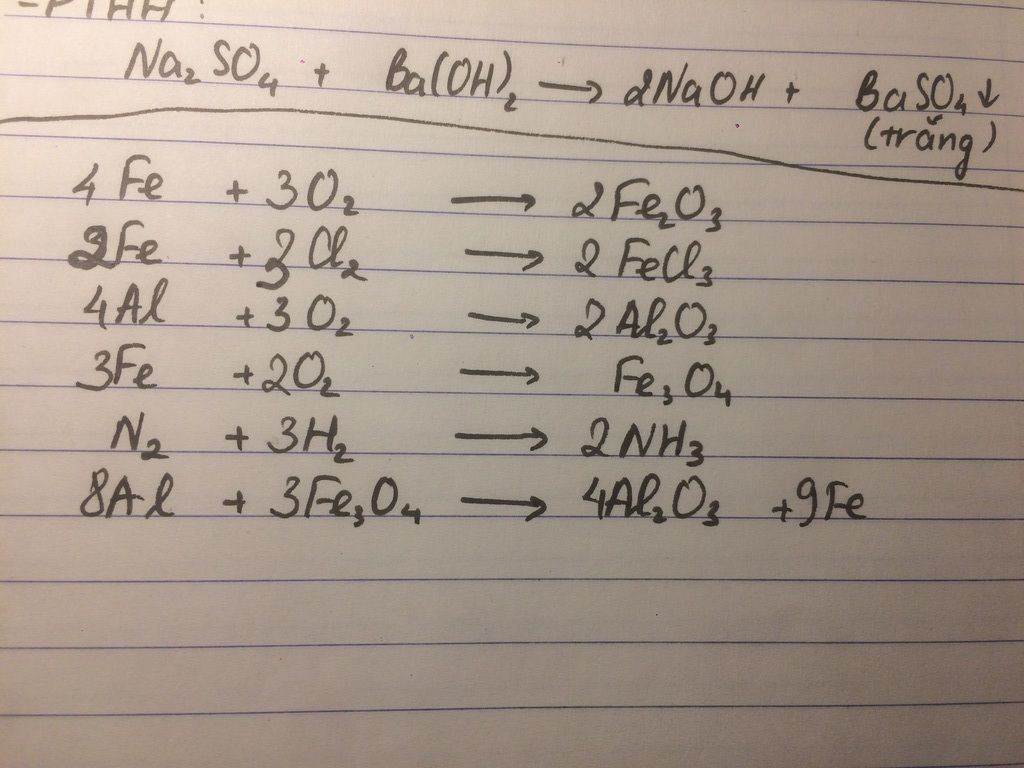 -PTHH :
Na₂SO₄ + Ba(OH)₂ → 2NaOH + BaSO₄↓
(trắng)
4Fe + 3O₂ → 2Fe₂O₃
2Fe + 3Cl₂ → 2FeCl₃
4Al + 3O₂ → 2Al₂O₃
3Fe + 2O₂ → Fe₃O₄
N₂ + 3H₂ → 2NH₃
8Al + 3Fe₃O₄ → 4Al₂O₃ + 9Fe